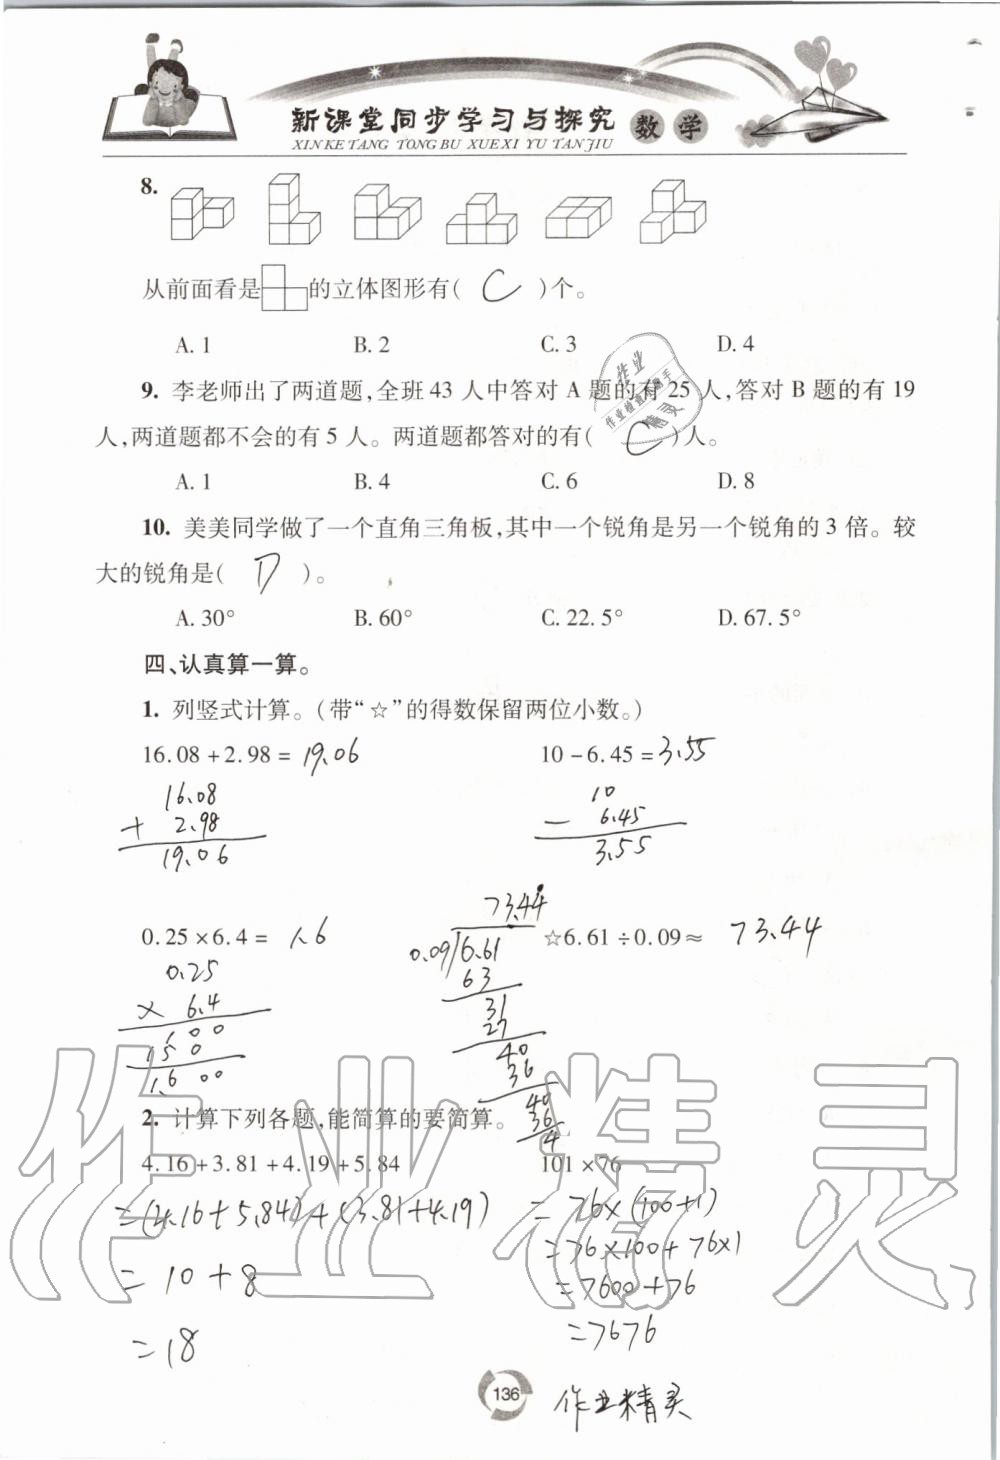 新课堂同步学习与探究 数学
XIN KE TANG TONG BU XUE XI YU TAN JIU
8.
从前面看是 的立体图形有( C )个。
A. 1 B. 2 C. 3 D. 4
9. 李老师出了两道题,全班43人中答对A题的有25人,答对B题的有19
人,两道题都不会的有5人。两道题都答对的有( C )人。
A. 1 B. 4 C. 6 D. 8
10. 美美同学做了一个直角三角板,其中一个锐角是另一个锐角的3倍。较
大的锐角是( D )。
A. 30° B. 60° C. 22.5° D. 67.5°
四、认真算一算。
1. 列竖式计算。(带“☆”的得数保留两位小数。)
16.08+2.98= 19.06 10-6.45= 3.55
16.08 10
+ 2.98 - 6.45
19.06 3.55
73.44
0.25×6.4= 1.6 0.09 6.61 ☆6.61÷0.09≈ 73.44
0.25 63
× 6.4 31
100 27
150 40
1.600 36
40
2. 计算下列各题,能简算的要简算。 36
4
4.16+3.81+4.19+5.84 101×76
=(4.16+5.84)+(3.81+4.19) = 76×(100+1)
= 10+8 =76×100+76×1
=18 =7600+76
=7676
136 作业精灵
作业精灵
作业
作业检查小助手
精灵